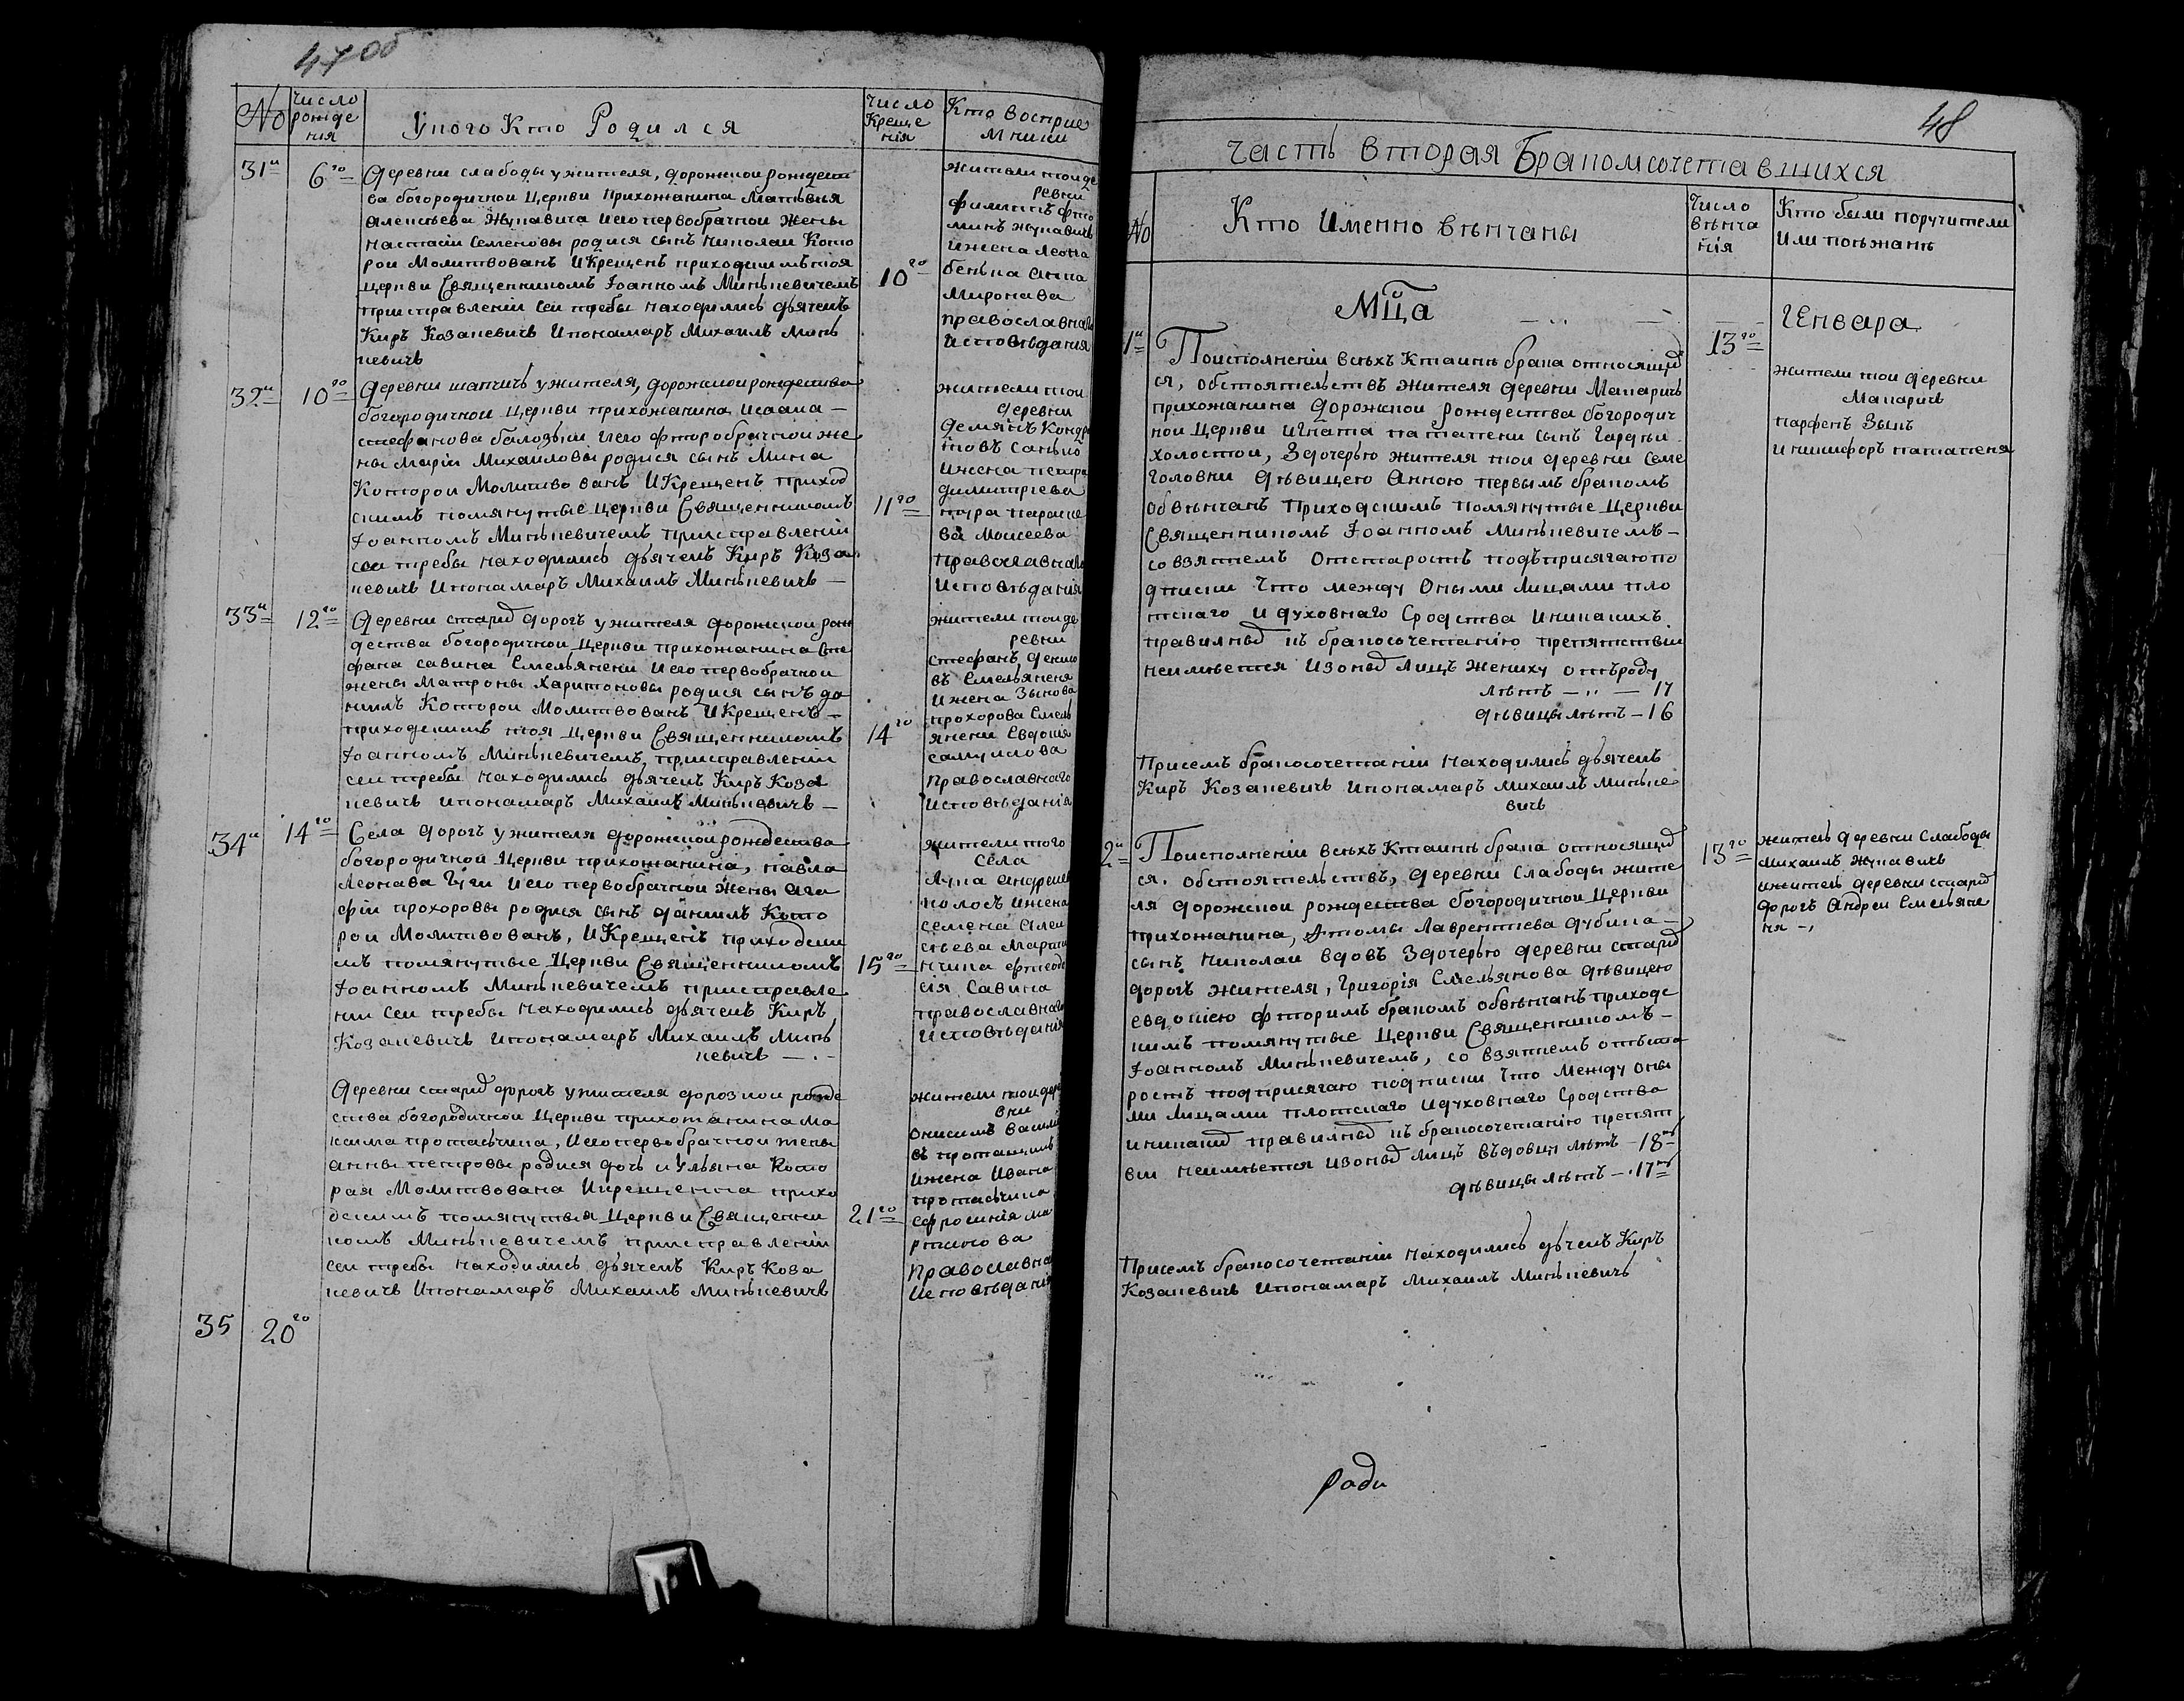 47 об
No
Число рожде ния
У кого Кто Родился
Число Креще ния
Кто восприе мники
31и
6го
Деревни слабоды ужителя, дорожской рождест
ва богородичной Церкви Прихожанина Матвѣя
Алексѣева Жукавича иего первобрачной Жены
Настасіи Семеновы родися сынъ Николай Кото
рой Молитвованъ ИКрещенъ приходскимъ тоя
Церкви Священникомъ Іоанномъ Минкевичемъ
при справленіи сей требы находились дьячекъ
Киръ Козакевичъ Ипономаръ Михаилъ Минь
кевичъ
10го
жители той де
ревни
Филиппъ фто
минъ жукавичъ
ижена
Анна
Миронава
православнаго
исповѣданія
32и
10го
Деревни шапчичь ужителя, дорожской рождества
богородичной Церкви прихожанина Исаака —
стефанова балозьки иего фторобрачной же
ны Маріи Михаиловы родися сынъ Мина
Которой Молитвованъ ИКрещенъ приход
скимъ помянутые Церкви Священникомъ
Іоанномъ Минькевичемъ при справленіи
сей требы находились дьячекъ Киръ Коза
кевичъ Ипономаръ Михаилъ Минькевичъ —
11го
жители той
деревни
Демянъ Кондра
товъ
Ижена
димитріева
параске
ва Моисеева
православнаго
исповѣданія
33и
12го
Деревни старых дорогъ ужителя дорожской рож
дества богородичной Церкви прихожанина Сте
фана савина Емельянени иего первобрачной
жены Матроны Харитоновы родися сынъ да
ниилъ Которой Молитвованъ ИКрещенъ —
приходскимъ тоя Церкви Священникомъ
Іоанномъ Минькевичемъ, присправленіи
сей требы находились дьячекъ Киръ Коза
кевичъ ипономаръ Михаилъ Минькевичъ —
14го
жители той де
ревни
стефанъ дении
въ Емельяненя
ижена Зынова
прохорова Емель
янени Евдокия
самуилова
православнаго
исповѣданія
34и
14го
Села дорогъ ужителя дорожской рождества
богородичной Церкви прихожанина, павла
Леонава Гузи иего первобрачной жены Ага
фіи прохоровы родися сынъ даниилъ Кото
рой Молитвованъ, ИКрещенъ приходски
мъ помянутые Церкви Священникомъ
Іоанномъ Минькевичемъ присправле
нии сей требы находились дьячекъ Киръ
Козакевичъ ипономаръ Михаилъ Минь
кевичъ —
15го
жители того
села
Лука андреевъ
колосъ ижена
семена Алек
сѣева
феодо
сія Савина
православнаго
исповѣданія
Деревни старых дорогъ ужителя дорозкой рожде
ства богородичной Церкви прихожанина Ма
ксима протасѣчика, иего первобрачной жены
анны петровы родися дочь иУльяна Кото
рая Молитвована Икрещенна прихо
дскимъ помянутыя Церкви Священни
комъ Минькевичемъ присправленіи
сей требы находились дьячекъ Киръ Коза
кевичъ Ипономаръ Михаилъ Минькевичъ
21го
жители той дере
вни
Онисимъ васильѣ
въ
ижена Ивана
протасѣчика
ефросинія ма
ркова
православнаго
исповѣданія
35
20го
48
Часть вторая Бракомсочетавшихся
No
Кто Именно вѣнчаны
Число вѣнча нія
Кто были поручители Или поѣжане
Мца
Генваря
1и
Поисполненіи всѣхъ Ктаинѣ брака относящих
ся, обстоятельствъ жителя деревни Макаричь
прихожанина дорожской рождества богородич
ной Церкви Игната пататени сынъ Гардѣй
холостой, Здочерью жителя той деревни Семе
Головни дѣвицею Анною первымъ бракомъ
обвѣнчанъ приходскимъ помянутые Церкви
Священникомъ Іоанномъ Минькевичемъ —
совзятіемъ Отстаростъ подъприсягаю по
дписки Что между Оными Лицами пло
тскаго и духовнаго Сродства Иникакихъ
правилных къ бракосочетанію препятствій
неимѣется Изоных Лицъ жениху отъроду
лѣтъ — „ — 17
дѣвицы лѣтъ — 16
Присемъ бракосочетаніи находились дьячекъ
Киръ Козакевичъ ипономаръ Михаилъ Минькe
вичъ
13го
жители той деревни
Макаричь
парфенъ Зыкъ
иникифоръ пататеня
2и
Поисполненіи всѣхъ Ктаинѣ брака относящих
ся, обстоятельствъ, деревни Слабоды жите
ля дорожской рождества богородичной Церкви
прихожанина, фтомы Лаврентіева дубика —
сынъ Николай вдовъ Здочерью деревни старых
дорогъ жителя, Григорія Емельянова дѣвицею
евдокіею фторимъ бракомъ обвѣнчанъ приходс
кимъ помянутые Церкви Священникомъ —
Іоанномъ Минькевичемъ, со взятіемъ отъста
ростъ подприсягаю подписки что Между оны
ми Лицами плотскаго идуховнаго Сродства
иникаких правилных къ бракосочетанію препят
вія неимѣется изоных лицъ въдовцу лѣтъ — 18ть
дѣвицы лѣтъ — 17ть
Присемъ бракосочетаніи находились дьчекъ Киръ
Козакевичъ ипономаръ Михаилъ Минькевичъ
13го
житель деревни Слабоды
Михаилъ жукавичъ
ижитель деревни старых
дорогъ Андрей Емельяне
ня —